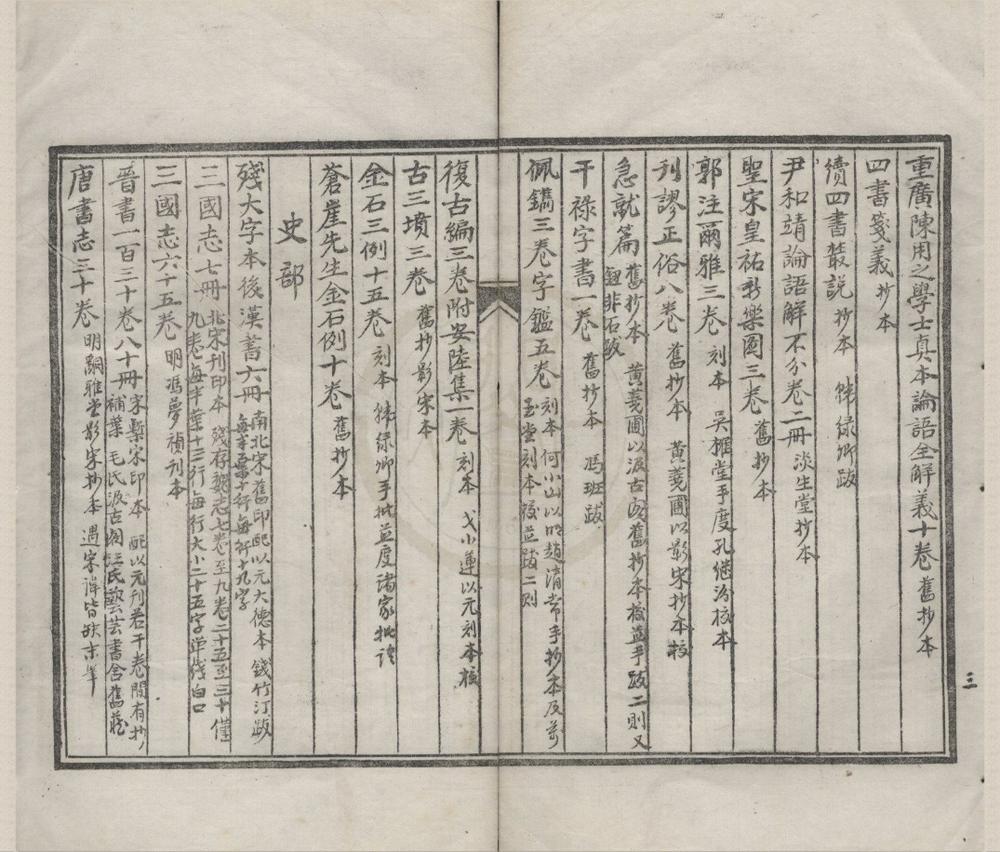 重廣陳用之學士真本論語全解義十卷 舊抄本
四書箋義 抄本
續四書叢說 抄本 韩綠卿跋
尹和靖論語解不分卷二冊 淡生堂抄本
聖宋皇祐新樂圖三卷 舊抄本
郭注爾雅三卷 刻本 吳枚堂手度孔继汾校本
刊謬正俗八卷 舊抄本 黃蕘圃以影宋抄本校
急就篇 舊抄本 黃蕘圃以汲古阁舊抄本校並手跋二則又
鈕非石跋
干祿字書一卷 舊抄本 馮班跋
佩觿三卷字鑑五卷 刻本何小山以明趙清常手抄本及萬
玉堂刻本校並跋二則
復古編三卷附安陸集一卷 刻本 戈小蓮以元刻本校
古三墳三卷 舊抄影宋本
金石三例十五卷 刻本 韩绿卿手批並度諸家批語
蒼崖先生金石例十卷 舊抄本
史部
殘大字本後漢書六冊 南北宋舊印配以元大德本 錢竹汀跋
每半葉十行每行十九字
三國志七冊 北宋刊印本 殘存魏志七卷至九卷二十五至三十僅
九卷每半葉十三行每行大小二十五字单线白口
三國志六十五卷 明馮夢禎刊本
晉書一百三十卷八十冊 宋槧宋印本 配以元刊若干卷間有抄
補葉 毛氏汲古阁汪氏藝芸書舍舊藏
唐書志三十卷 明嗣雅堂影宋抄本 遇宋諱皆缺末筆
三